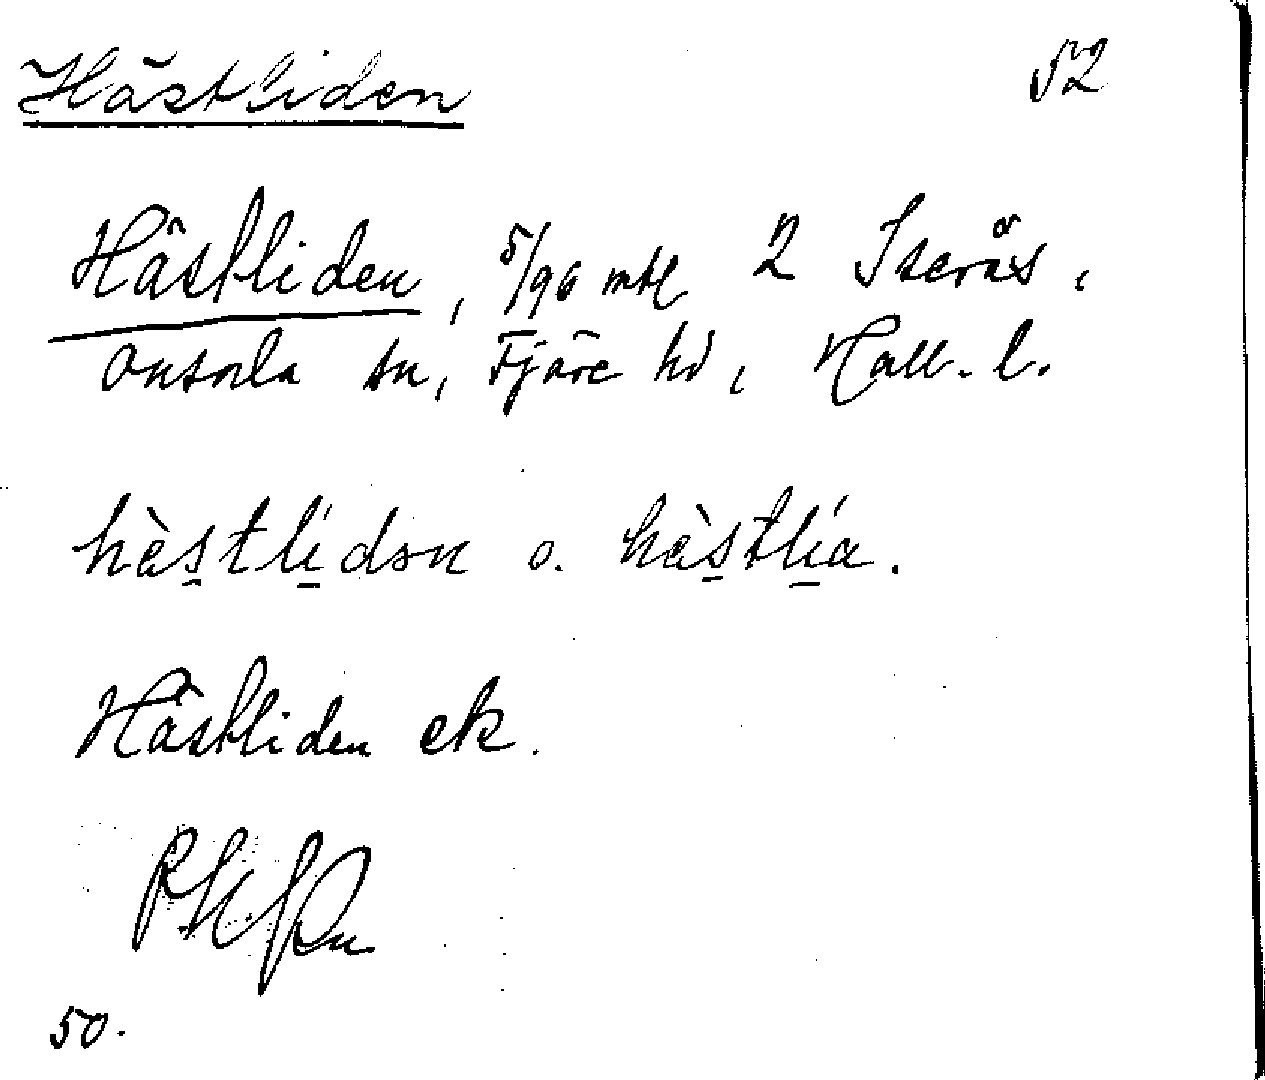 Hästliden 52
Hästliden, 5/96 mtl 2 Iserås,
Onsala sn, Fjäre hd, Hall. l.
hæ̀stlídən o. hæ̀stlía.
Hästliden ek.
50.